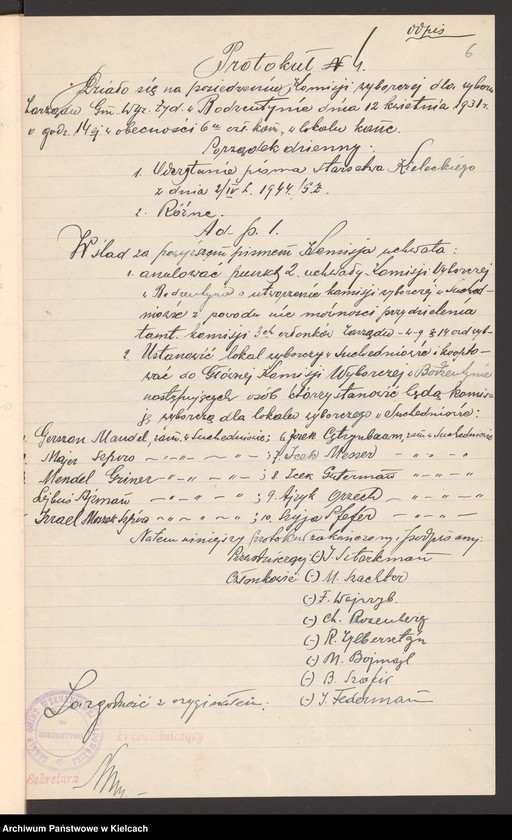 odpis
6
Protokuł № 4.
Działo się na posiedzeniu Komisji wyborczej dla wyboru
Zarządu Gm. Wyz. Żyd. w Bodzentynie dnia 12 kwietnia 1931 r.
o godz. 14ej w obecności 6u czł. kom. w lokalu kanc.
Porządek dzienny:
1. Odczytanie pisma Starostwa Kieleckiego
z dnia 2/IV L. 1944/
2. Różne.
Ad. p. 1.
W ślad za powyższem pismem Komisja uchwala:
1. anulować punkt 2. uchwały Komisji Wyborczej
w Bodzentynie o utworzenie komisji wyborczej w Suched-
niowie z powodu nie możności przydzielenia
tamt. komisji 3ch członków Zarządu
2. Ustanowić lokal wyborczy w Suchedniowie i koopto-
wać do Głównej Komisji Wyborczej w Bodzentynie
następujących osób którzy stanowić będą komis-
ję wyborczą dla lokalu wyborczego w Suchedniowie:
Gerszon Mandel, zam. w Suchedniowie; 6 Cytrynbaam, zam. w Suchedniowie
Majer Szpiro — " — " — ; 7 Icek Messer — " — " —
Mendel Griner — " — " — ; 8 Icek Guterman — " — " —
Lejbuś — " — " — ; 9. Ajzyk Orzech — " — " —
Izrael Moszek Szpiro — " — " — ; 10. Szyja Pfefer — " — " —
Na tem niniejszy protokuł zakończony i podpisany:
Przewodniczący: (-) J. Sztarkman
Członkowie (-) M. Szachter
(-) F. Wajnryb.
(-) Ch. Rozenberg
(-) R. Zylbersztajn
(-) M. Bojmajl
(-) B. Szafir
(-) J. Federman
Za zgodność z oryginałem:
Przewodniczący
Sekretarz
Archiwum Państwowe w Kielcach